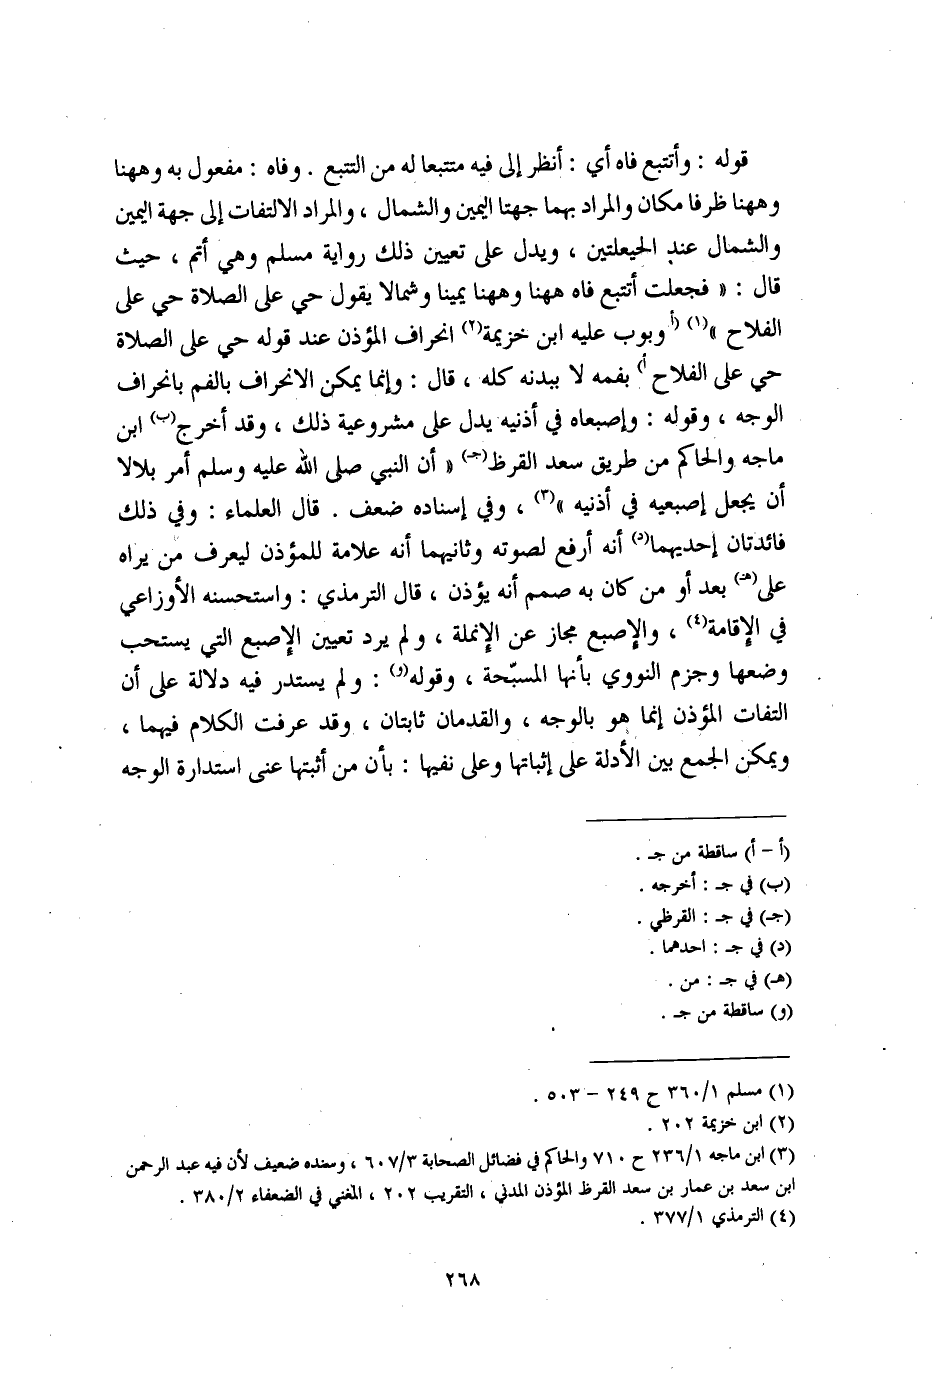 قوله : وأتتبع فاه أي : أنظر إلى فيه متتبعا له من التتبع . وفاه : مفعول به وههنا
وههنا ظرفا مكان والمراد بهما جهتا اليمين والشمال ، والمراد الالتفات إلى جهة اليمين
والشمال عند الحيعلتين ، ويدل على تعيين ذلك رواية مسلم وهي أتم ، حيث
قال : « فجعلت أتتبع فاه ههنا وههنا يمينا وشمالا يقول حي على الصلاة حي على
الفلاح »(١) (أ وبوب عليه ابن خزيمة(٢) انحراف المؤذن عند قوله حي على الصلاة
حي على الفلاح أ) بفمه لا ببدنه كله ، قال : وإنما يمكن الانحراف بالفم بانحراف
الوجه ، وقوله : وإصبعاه في أذنيه يدل على مشروعية ذلك ، وقد أخرج(ب) ابن
ماجه والحاكم من طريق سعد القرظ(جـ) « أن النبي صلى الله عليه وسلم أمر بلالا
أن يجعل إصبعيه في أذنيه »(٣) ، وفي إسناده ضعف . قال العلماء : وفي ذلك
فائدتان إحديهما(د) أنه أرفع لصوته وثانيهما أنه علامة للمؤذن ليعرف من يراه
على(هـ) بعد أو من كان به صمم أنه يؤذن ، قال الترمذي : واستحسنه الأوزاعي
في الإقامة(٤) ، والإصبع مجاز عن الإنملة ، ولم يرد تعيين الإصبع التي يستحب
وضعها وجزم النووي بأنها المسبّحة ، وقوله(و) : ولم يستدر فيه دلالة على أن
التفات المؤذن إنما هو بالوجه ، والقدمان ثابتان ، وقد عرفت الكلام فيهما ،
ويمكن الجمع بين الأدلة على إثباتها وعلى نفيها : بأن من أثبتها عنى استدارة الوجه
(أ - أ) ساقطة من جـ .
(ب) في جـ : أخرجه .
(جـ) في جـ : القرظي .
(د) في جـ : احدهما .
(هـ) في جـ : من .
(و) ساقطة من جـ .
(١) مسلم ٣٦٠/١ ح ٢٤٩ - ٥٠٣ .
(٢) ابن خزيمة ٢٠٢ .
(٣) ابن ماجه ٢٣٦/١ ح ٧١٠ والحاكم في فضائل الصحابة ٦٠٧/٣ ، وسنده ضعيف لأن فيه عبد الرحمن
ابن سعد بن عمار بن سعد القرظ المؤذن المدني ، التقريب ٢٠٢ ، المغني في الضعفاء ٣٨٠/٢ .
(٤) الترمذي ٣٧٧/١ .
٢٦٨